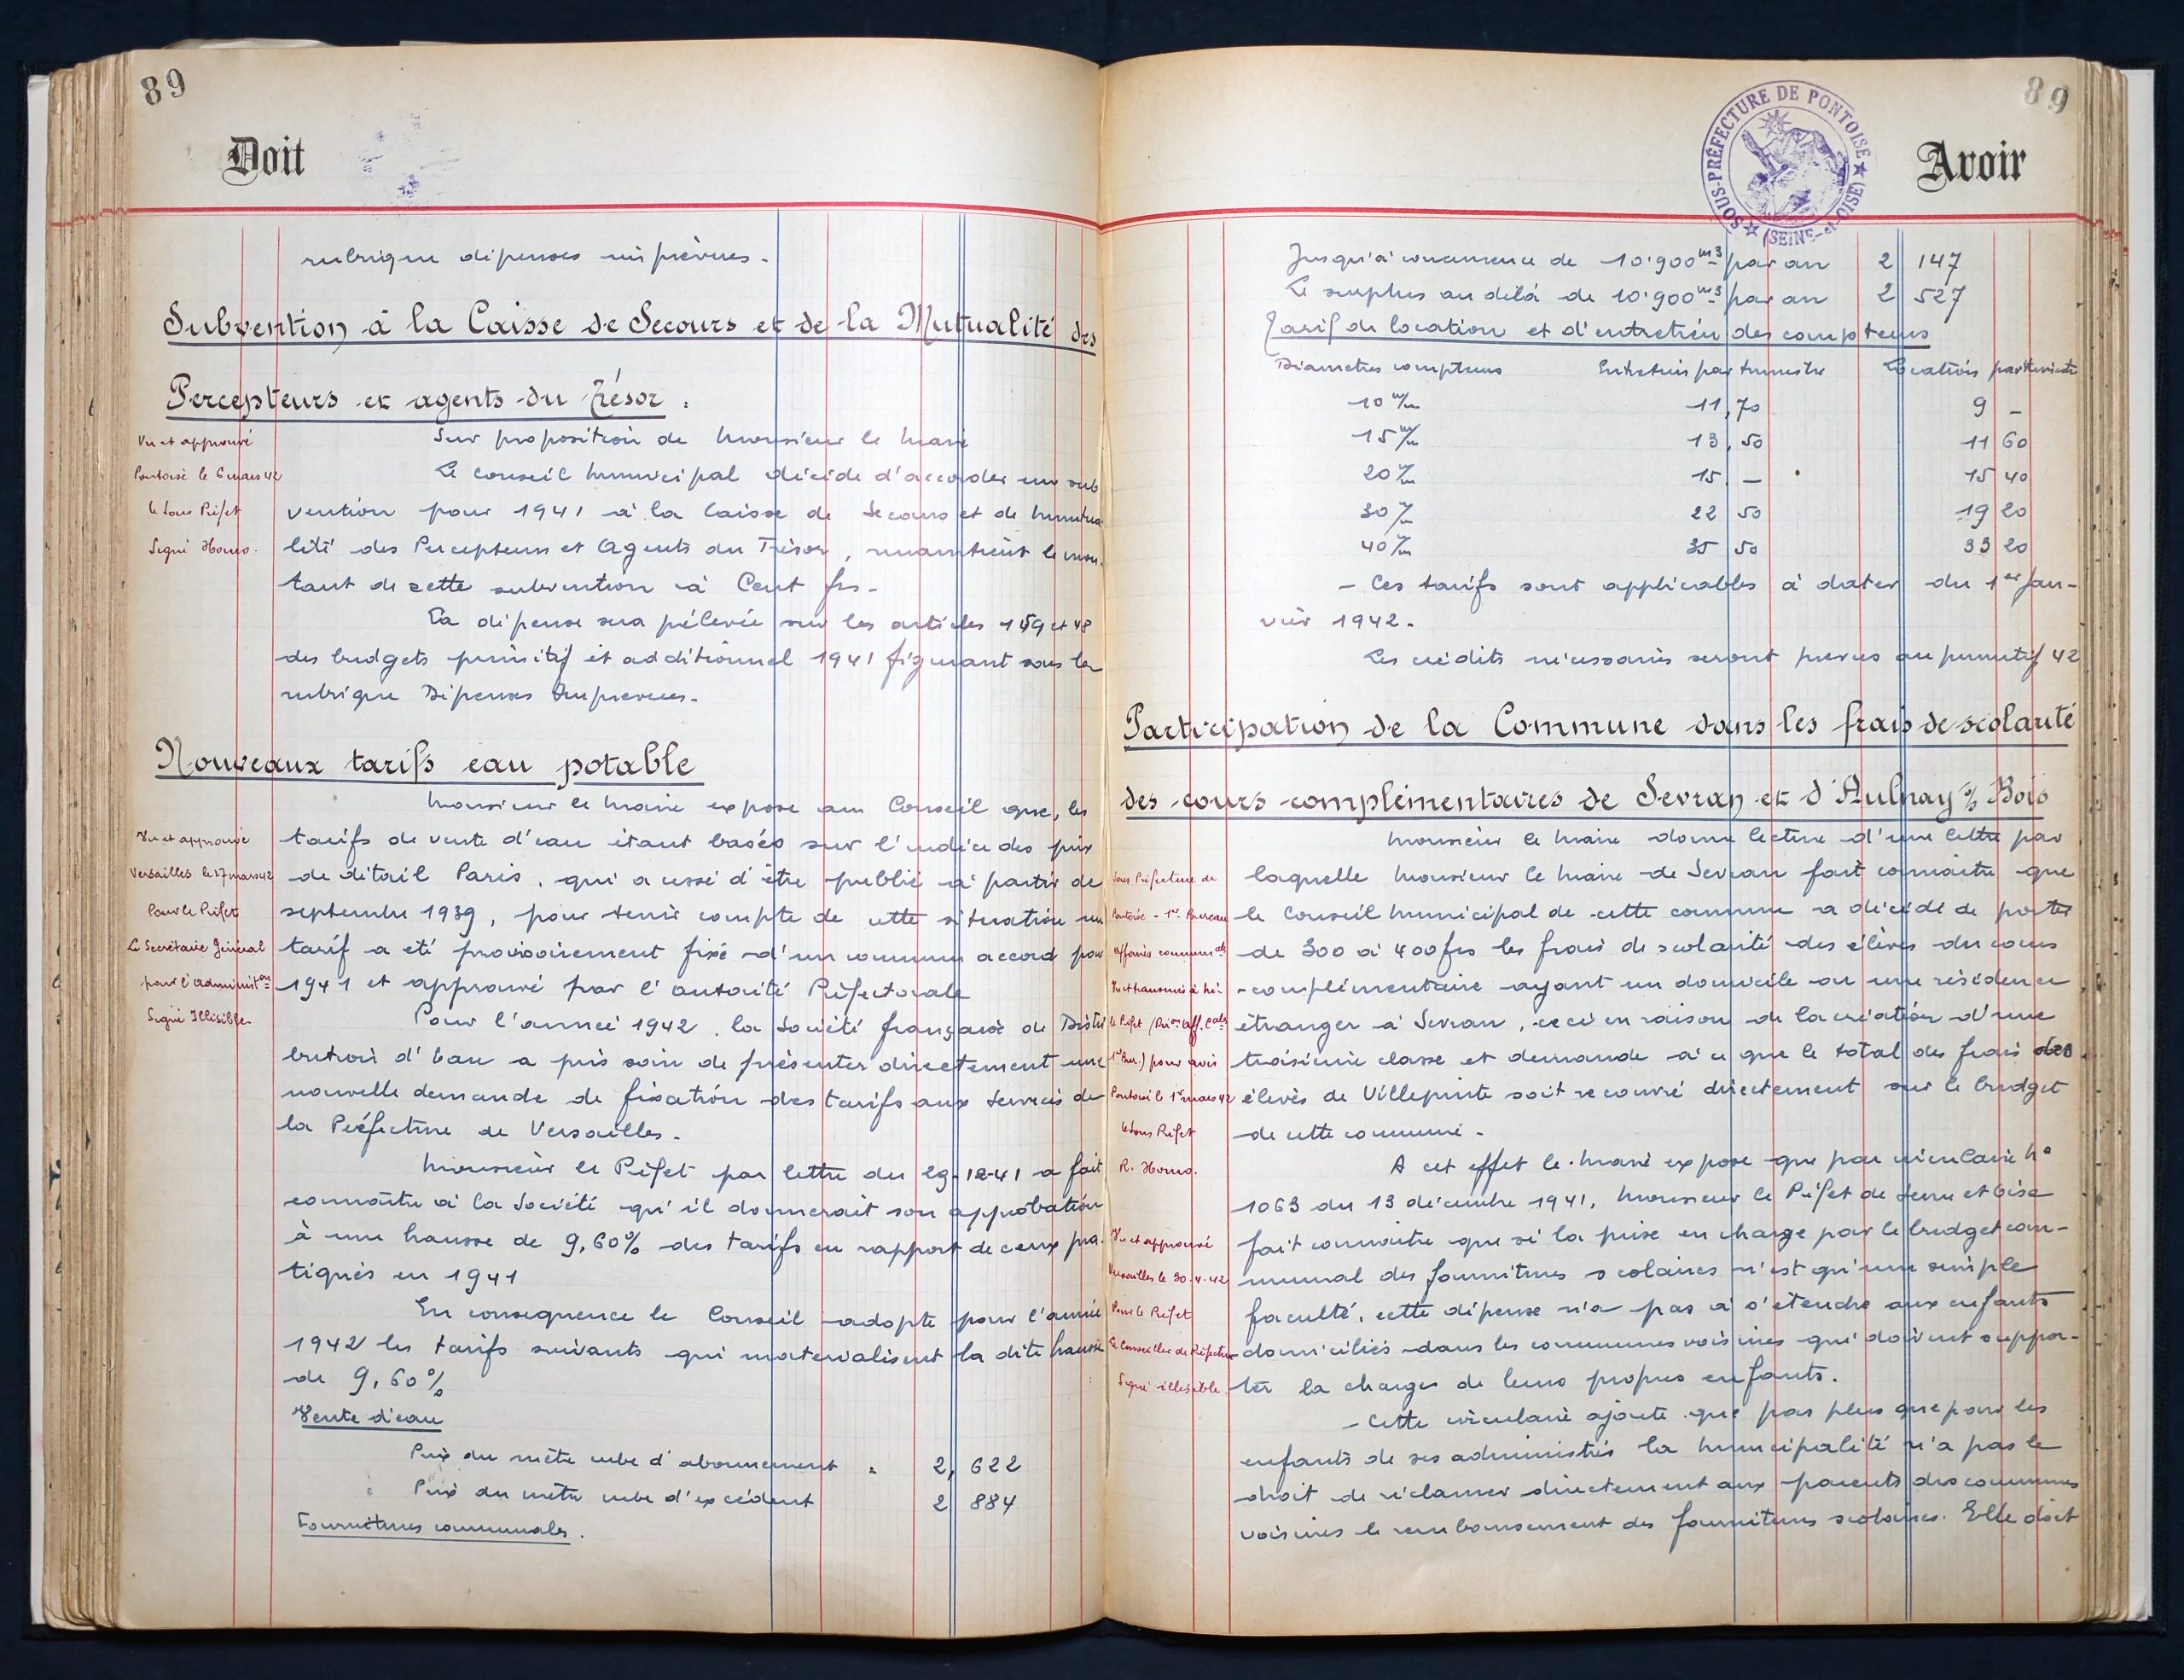 89
Doit
rubrique dépenses imprévues.
Subvention à la Caisse de Secours et de la Mutualité des
Percepteurs et agents du Trésor :
Vu et approuvé
Pontoise le 6 mars 42
le Sous Préfet
Signé Homo.
Sur proposition de Monsieur le Maire
Le Conseil Municipal décide d'accorder une sub
vention pour 1941 à la Caisse de Secours et de Mutua
lité des Percepteurs et Agents du Trésor, maintient le mon-
tant de cette subvention à Cent frs.
La dépense sera prélevée sur les articles 159 et 48
des budgets primitif et additionnel 1941 figurant sous la
rubrique Dépenses Imprévues.
Nouveaux tarifs eau potable
Vu et approuvé
Versailles le 17 mars 42
Pour le Préfet
Le Secrétaire Général
pour l'administon
Signé Illisible.
Monsieur le Maire expose au Conseil que, les
tarifs de vente d'eau étant basés sur l'indice des prix
de détail Paris, qui a cessé d'être publié à partir de
septembre 1939, pour tenir compte de cette situation un
tarif a été provisoirement fixé d'un commun accord pour
1941 et approuvé par l'autorité Préfectorale
Pour l'année 1942, la Société française de Distri
bution d'Eau a pris soin de présenter directement une
nouvelle demande de fixation des tarifs aux Services de
la Préfecture de Versailles.
Monsieur le Préfet par lettre du 29-12-41 a fait
connaître à la Société qu'il donnerait son approbation
à une hausse de 9,60% des tarifs en rapport de ceux pra-
tiqués en 1941
En conséquence le Conseil adopte pour l'année
1942 les tarifs suivants qui matérialisent la dite hausse
de 9,60%
Vente d'eau
Prix du mètre cube d'abonnement . 2, 622
Prix du mètre cube d'excédent 2 884
Fournitures communales.
89
Avoir
SOUS-PRÉFECTURE DE PONTOISE
(SEINE-et-OISE)
Jusqu'à concurrence de 10.900 m3 par an 2 147
Le surplus au delà de 10.900 m3 par an 2 527
Tarif de location et d'entretien des compteurs
Diamètres compteurs Entretien par trimestre Location par trimestre
10 m/m 11,70 9 -
15 m/m 13,50 11 60
20 m/m 15 - 15 40
30 m/m 22 50 19 20
40 m/m 35 50 33 20
- Ces tarifs sont applicables à dater du 1er Jan-
vier 1942.
Les crédits nécessaires seront prévus au primitif 42
Participation de la Commune dans les frais de scolarité
des cours complémentaires de Sevran et d'Aulnay s/ Bois
Sous Préfecture de
Pontoise - 1er Bureau
Affaires communales
Vu et transmis à Mr
le Préfet (Don Aff. Cales
1er Bur.) pour avis
Pontoise le 1er mars 42
le Sous Préfet
R. Homo.
Vu et approuvé
Versailles le 30.4.42
Pour le Préfet
Le Conseiller de Préfecture
Signé illisible.
Monsieur le Maire donne lecture d'une lettre par
laquelle Monsieur le Maire de Sevran fait connaître que
le Conseil Municipal de cette commune a décidé de porter
de 300 à 400 frs les frais de scolarité des élèves du cours
-complémentaire ayant un domicile ou une résidence
étranger à Sevran, ceci en raison de la création d'une
troisième classe et demande à ce que le total des frais des
élèves de Villepinte soit recouvré directement sur le budget
de cette commune.
A cet effet le Maire expose que par circulaire N°
1063 du 13 décembre 1941, Monsieur le Préfet de Seine et Oise
fait connaître que si la prise en charge par le budget com-
munal des fournitures scolaires n'est qu'une simple
faculté, cette dépense n'a pas à s'étendre aux enfants
domiciliés dans les communes voisines qui doivent suppor-
ter la charge de leurs propres enfants.
- Cette circulaire ajoute que pas plus que pour les
enfants de ses administrés la Municipalité n'a pas le
droit de réclamer directement aux parents des communes
voisines le remboursement des fournitures scolaires. Elle doit